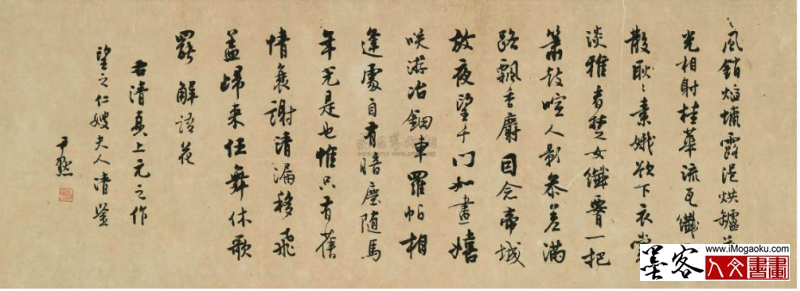 風銷焰蠟露浥烘罏
光相射桂華流瓦纖
散耿〻素娥欲下衣裳
淡雅看楚女纖腰一把
簫鼓喧人影參差滿
路飄香麝因念帝城
放夜望千門如晝嬉
咲游冶鈿車羅帕相
逢處自有暗塵隨馬
年光是也惟只有舊
情衰謝清漏移飛
蓋歸來任舞休歌
罷 解語花
右清真上元之作
望之仁嫂夫人清鑒
尹默
www.iMogaoku.com
墨客
人文書畫